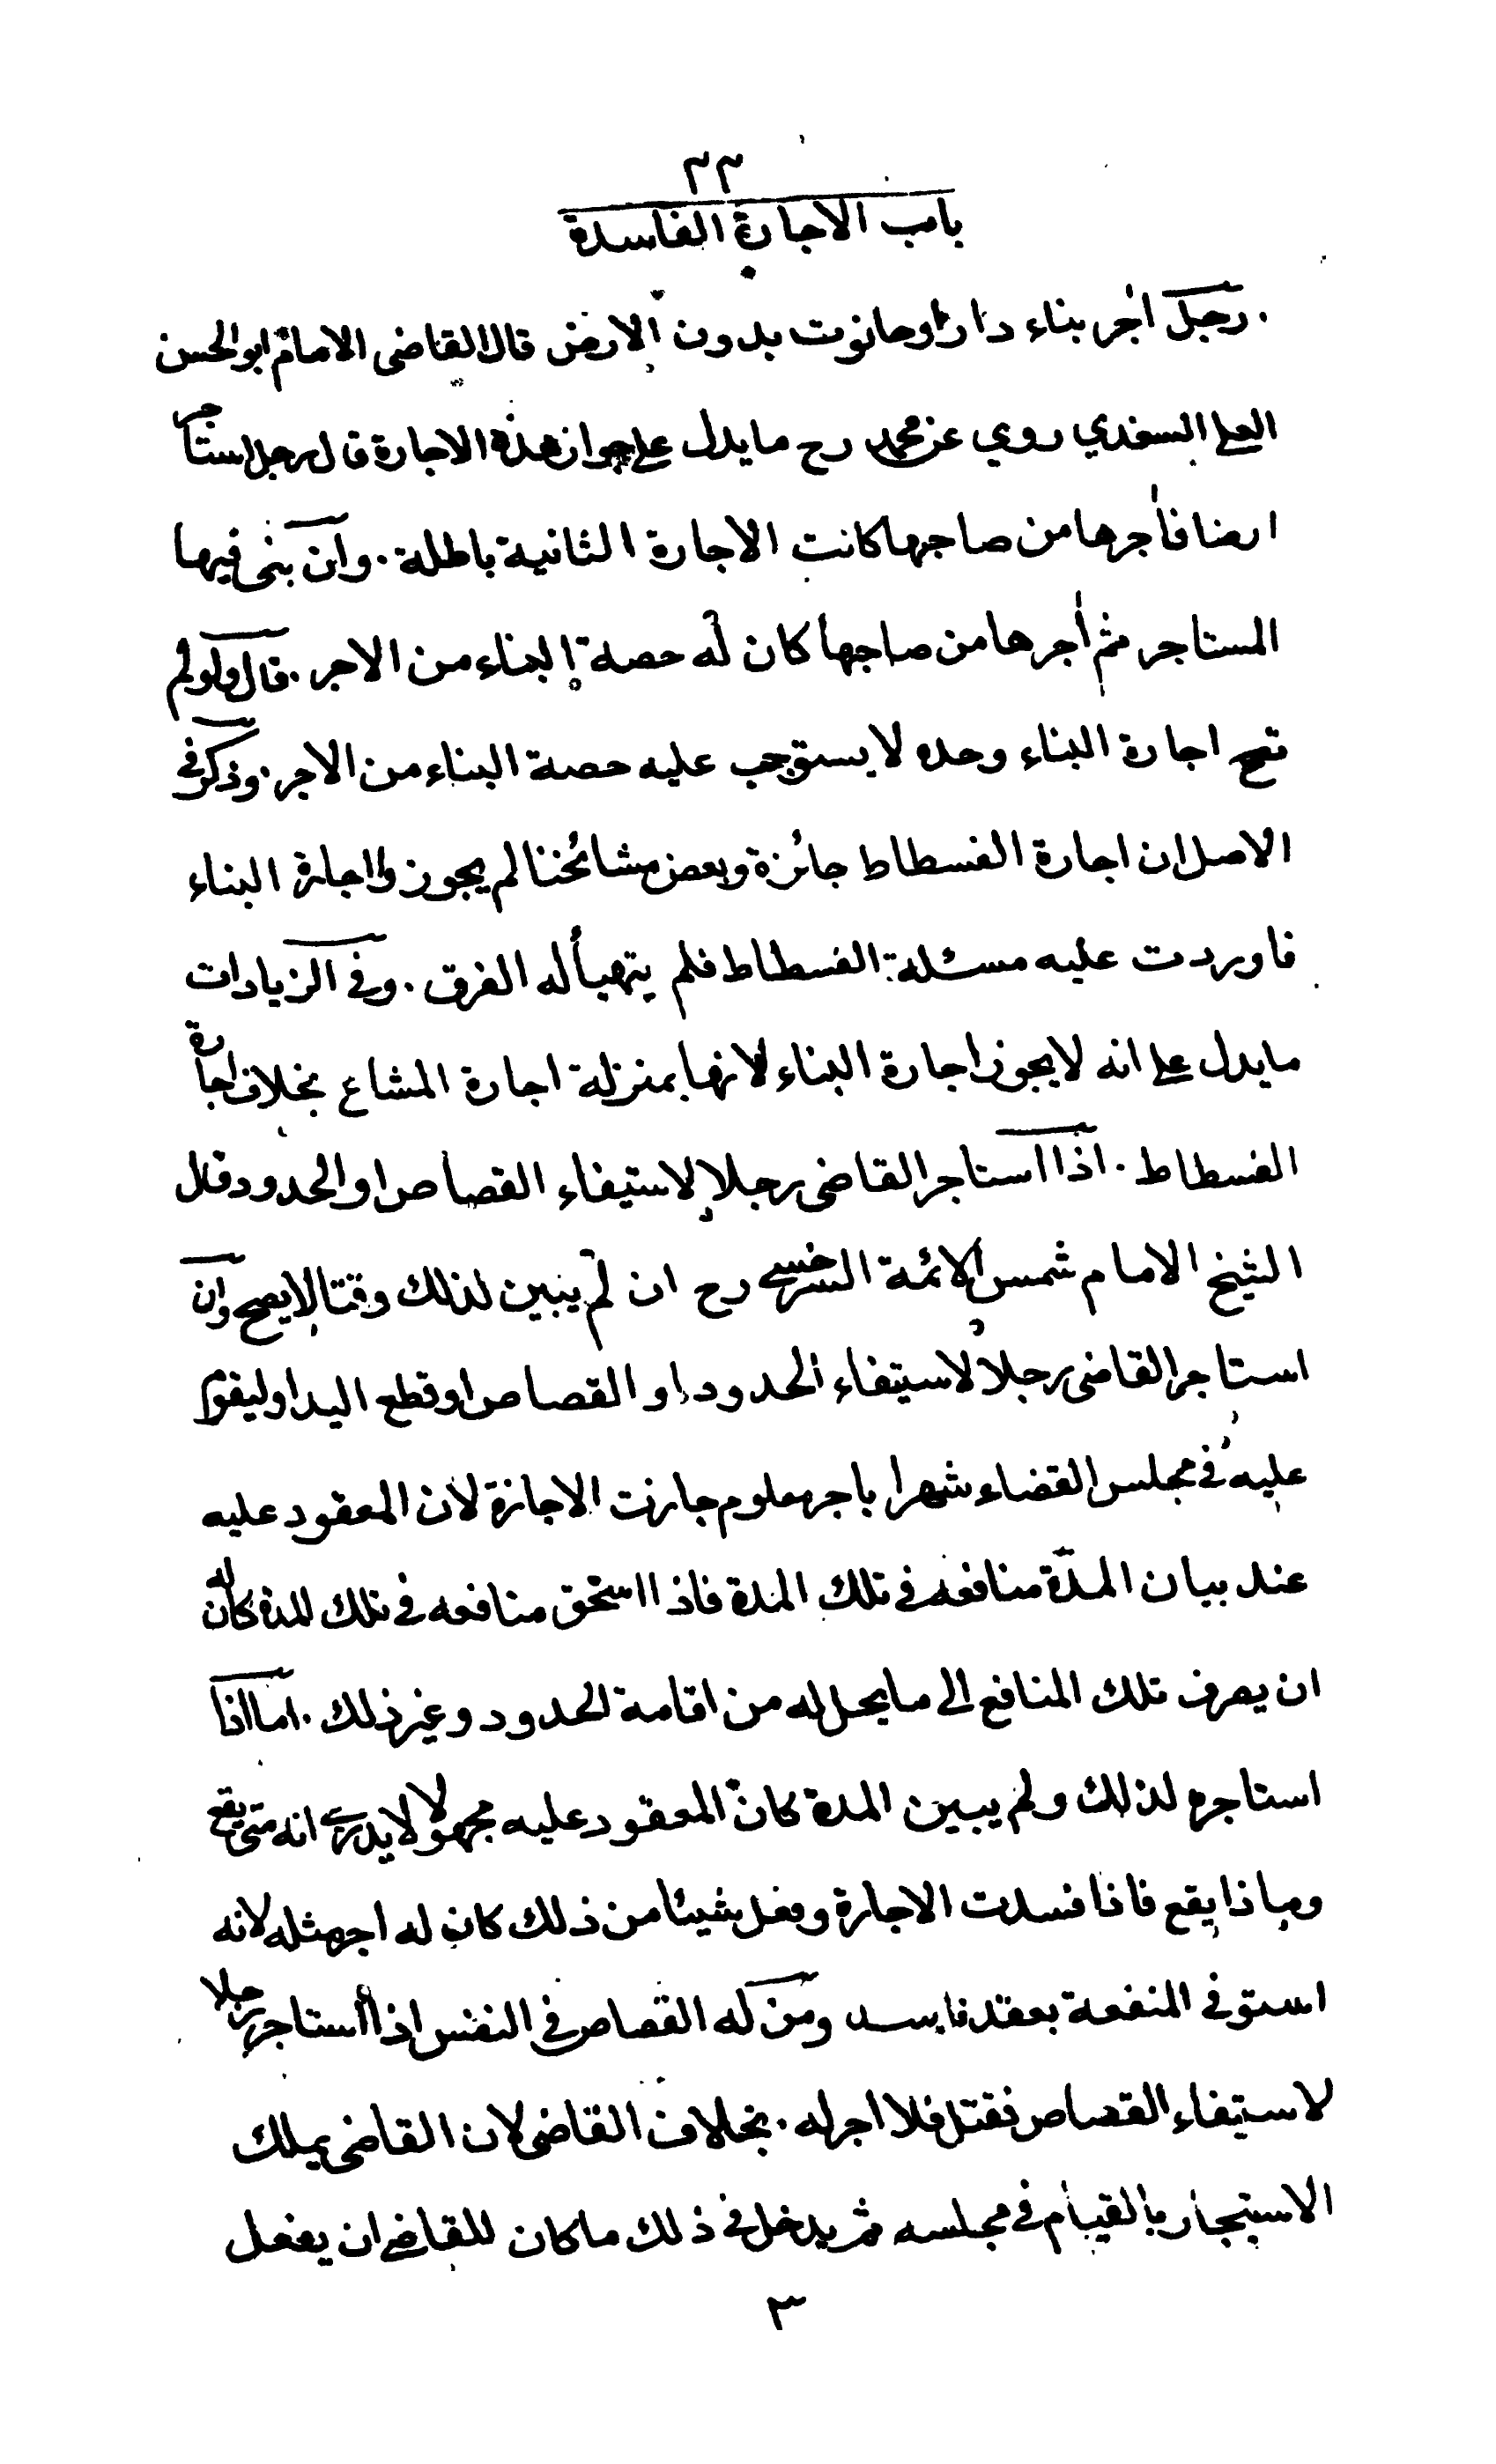 ٣٣
باب الاجارة الفاسدة
رجل اٰجر بناء دار او حانوت بدون الارض قال القاضى الامام ابو الحسن
العلى السغدي روي عن محمد رح ما يدل على جواز هذه الاجارة قال رجل استأجر
ارضا فاٰجرها من صاحبها كانت الاجارة الثانية باطلة . وان بنى فيها
المستاجر ثم اٰجرها من صاحبها كان له حصة البناء من الاجر . قال ولو لم
تصح اجارة البناء وحده لا يستوجب عليه حصة البناء من الاجر . وذكر فى
الاصل ان اجارة الفسطاط جائزة وبعض مشائخنا لم يجوزوا اجارة البناء
فاوردت عليه مسئلة الفسطاط فلم يتهيأ له الفرق . وفى الزيادات
ما يدل على انه لا يجوز اجارة البناء لانها بمنزلة اجارة المشاع بخلاف اجارة
الفسطاط . اذا استاجر القاضى رجلا لاستيفاء القصاص او الحدود قال
الشيخ الامام شمس الائمة السرخسى رح ان لم يبين لذلك وقتا لا يصح وان
استاجر القاضى رجلا لاستيفاء الحدود او القصاص او قطع اليد او ليقوم
عليه فى مجلس القضاء شهرا باجر معلوم جازت الاجازة لان المعقود عليه
عند بيان المدة منافعه فى تلك المدة فاذا استحق منافعه فى تلك المدة كان له
ان يصرف تلك المنافع الى ما يحل له من اقامة الحدود وغير ذلك . اما اذا
استاجره لذلك ولم يبين المدة كان المعقود عليه مجهولا لا يدرى انه متى يقع
وماذا يقع فاذا فسدت الاجارة وفعل شيئا من ذلك كان له اجر مثله لانه
استوفى المنفعة بعقد فاسد ومن له القصاص فى النفس اذا استاجر رجلا
لاستيفاء القصاص فقتل فلا اجر له . بخلاف القاضى لان القاضى يملك
الاستيجار بالقيام فى مجلسه ثم يدخل فى ذلك ما كان للقاضى ان يفعل
٣